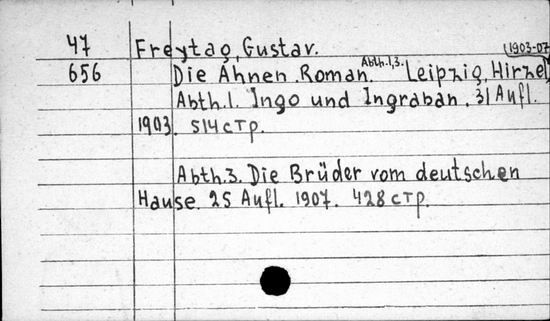 47 Freytag, Gustav.
656 Die Ahnen. Roman. Abth.1,3. Leipzig, Hirzel, (1903-07
Abth.1. Ingo und Ingraban. 31 Aufl.
1903. 514 стр.
Abth.3. Die Brüder vom deutschen
Hause. 25 Aufl. 1907. 428 стр.